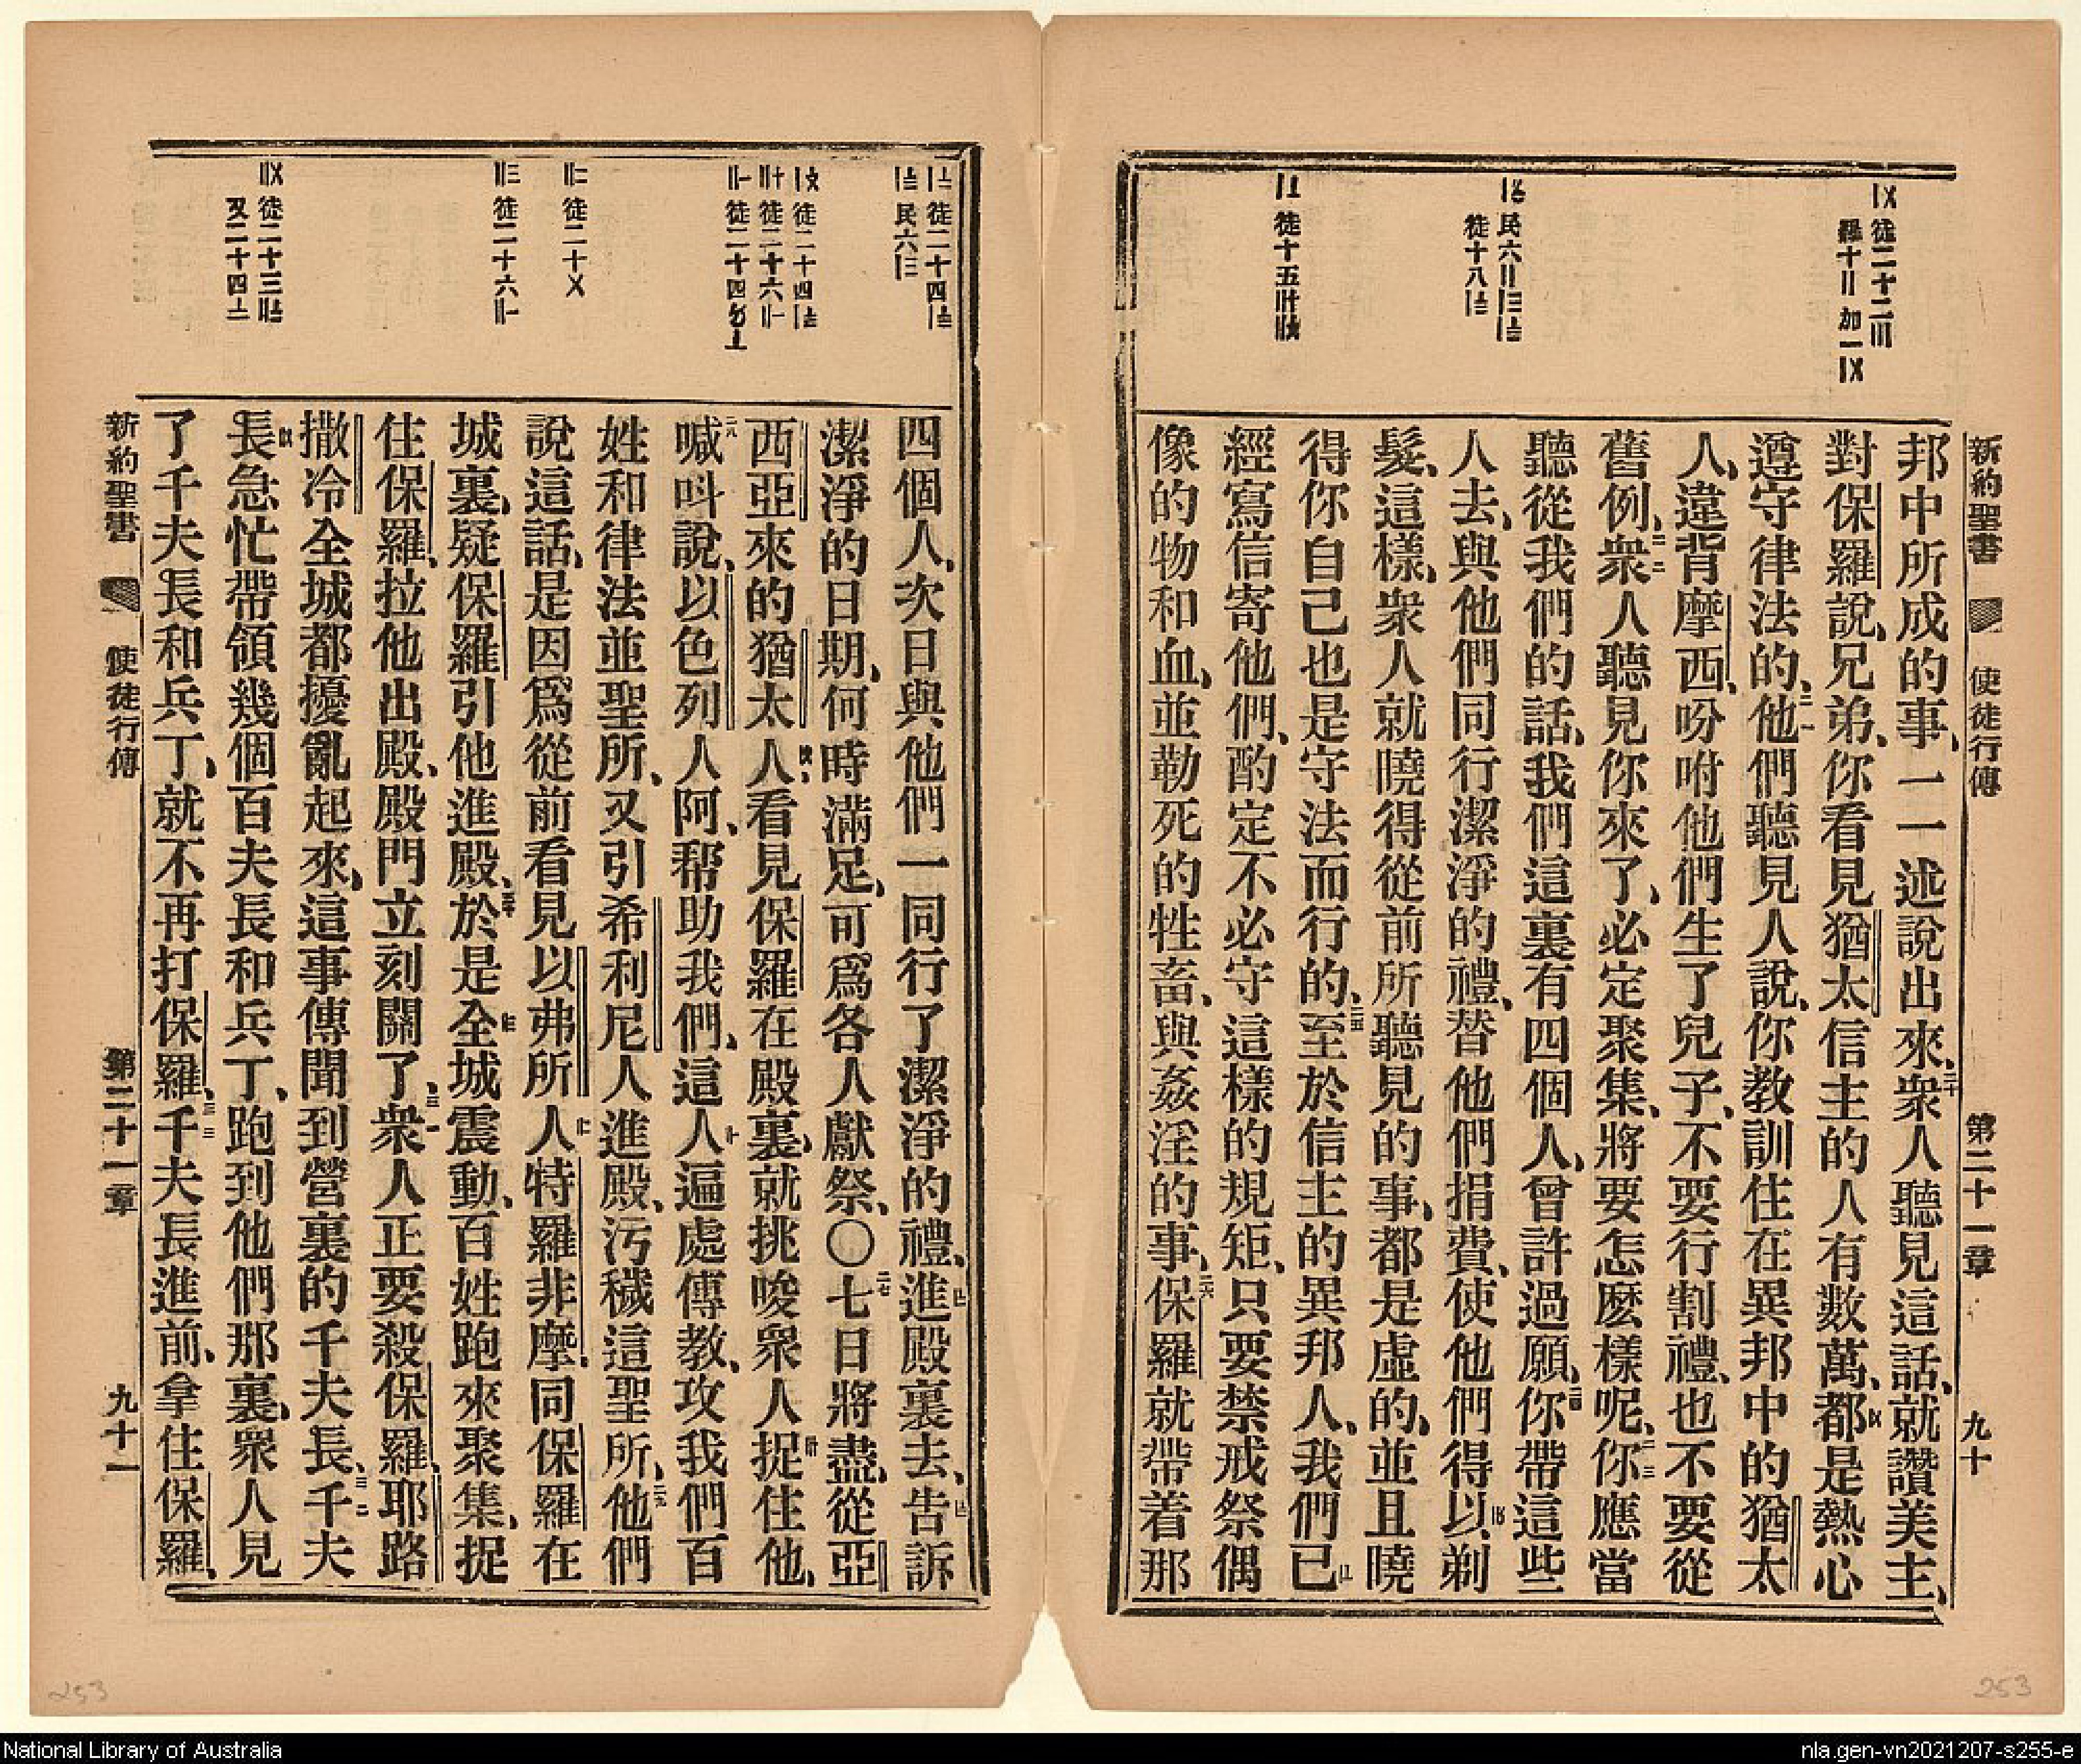 新約聖書
使徒行傳
第二十一章
九十
〤徒二十二〣
羅十〢 加一〤
民六
徒十八
徒十五
邦中所成的事、一一述說出來、二十衆人聽見這話、就讚美主、
對保羅說、兄弟、你看見猶太信主的人有數萬、都是熱心
遵守律法的、二一他們聽見人說、你教訓住在異邦中的猶太
人、違背摩西、吩咐他們生了兒子、不要行割禮、也不要從
舊例、二二衆人聽見你來了、必定聚集、將要怎麽樣呢、二三你應當
聽從我們的話、我們這裏有四個人、曾許過願、二四你帶這些
人去、與他們同行潔淨的禮、替他們捐費、使他們得以剃
髮、這樣、衆人就曉得從前所聽見的事、都是虛的、並且曉
得你自己也是守法而行的、二五至於信主的異邦人、我們已
經寫信寄他們、酌定不必守這樣的規矩、只要禁戒祭偶
像的物和血、並勒死的牲畜、與姦淫的事、二六保羅就帶着那
徒二十四
民六
徒二十四
徒二十六
徒二十四
徒二十〤
徒二十六
徒二十三
又二十四
四個人、次日與他們一同行了潔淨的禮、進殿裏去、告訴
潔淨的日期、何時滿足、可爲各人獻祭、〇二七七日將盡、從亞
西亞來的猶太人、看見保羅在殿裏、就挑唆衆人捉住他、
二八喊叫說、以色列人阿、帮助我們、這人遍處傳教、攻我們百
姓和律法並聖所、又引希利尼人進殿、污穢這聖所、二九他們
說這話、是因爲從前看見以弗所人特羅非摩、同保羅在
城裏、疑保羅引他進殿、三十於是全城震動、百姓跑來聚集、捉
住保羅、拉他出殿、殿門立刻關了、三一衆人正要殺保羅、耶路
撒冷全城都擾亂起來、這事傳聞到營裏的千夫長、三二千夫
長急忙帶領幾個百夫長和兵丁、跑到他們那裏、衆人見
了千夫長和兵丁、就不再打保羅、三三千夫長進前、拿住保羅、
新約聖書
使徒行傳
第二十一章
九十一
253
253
National Library of Australia
nla.gen-vn2021207-s255-e